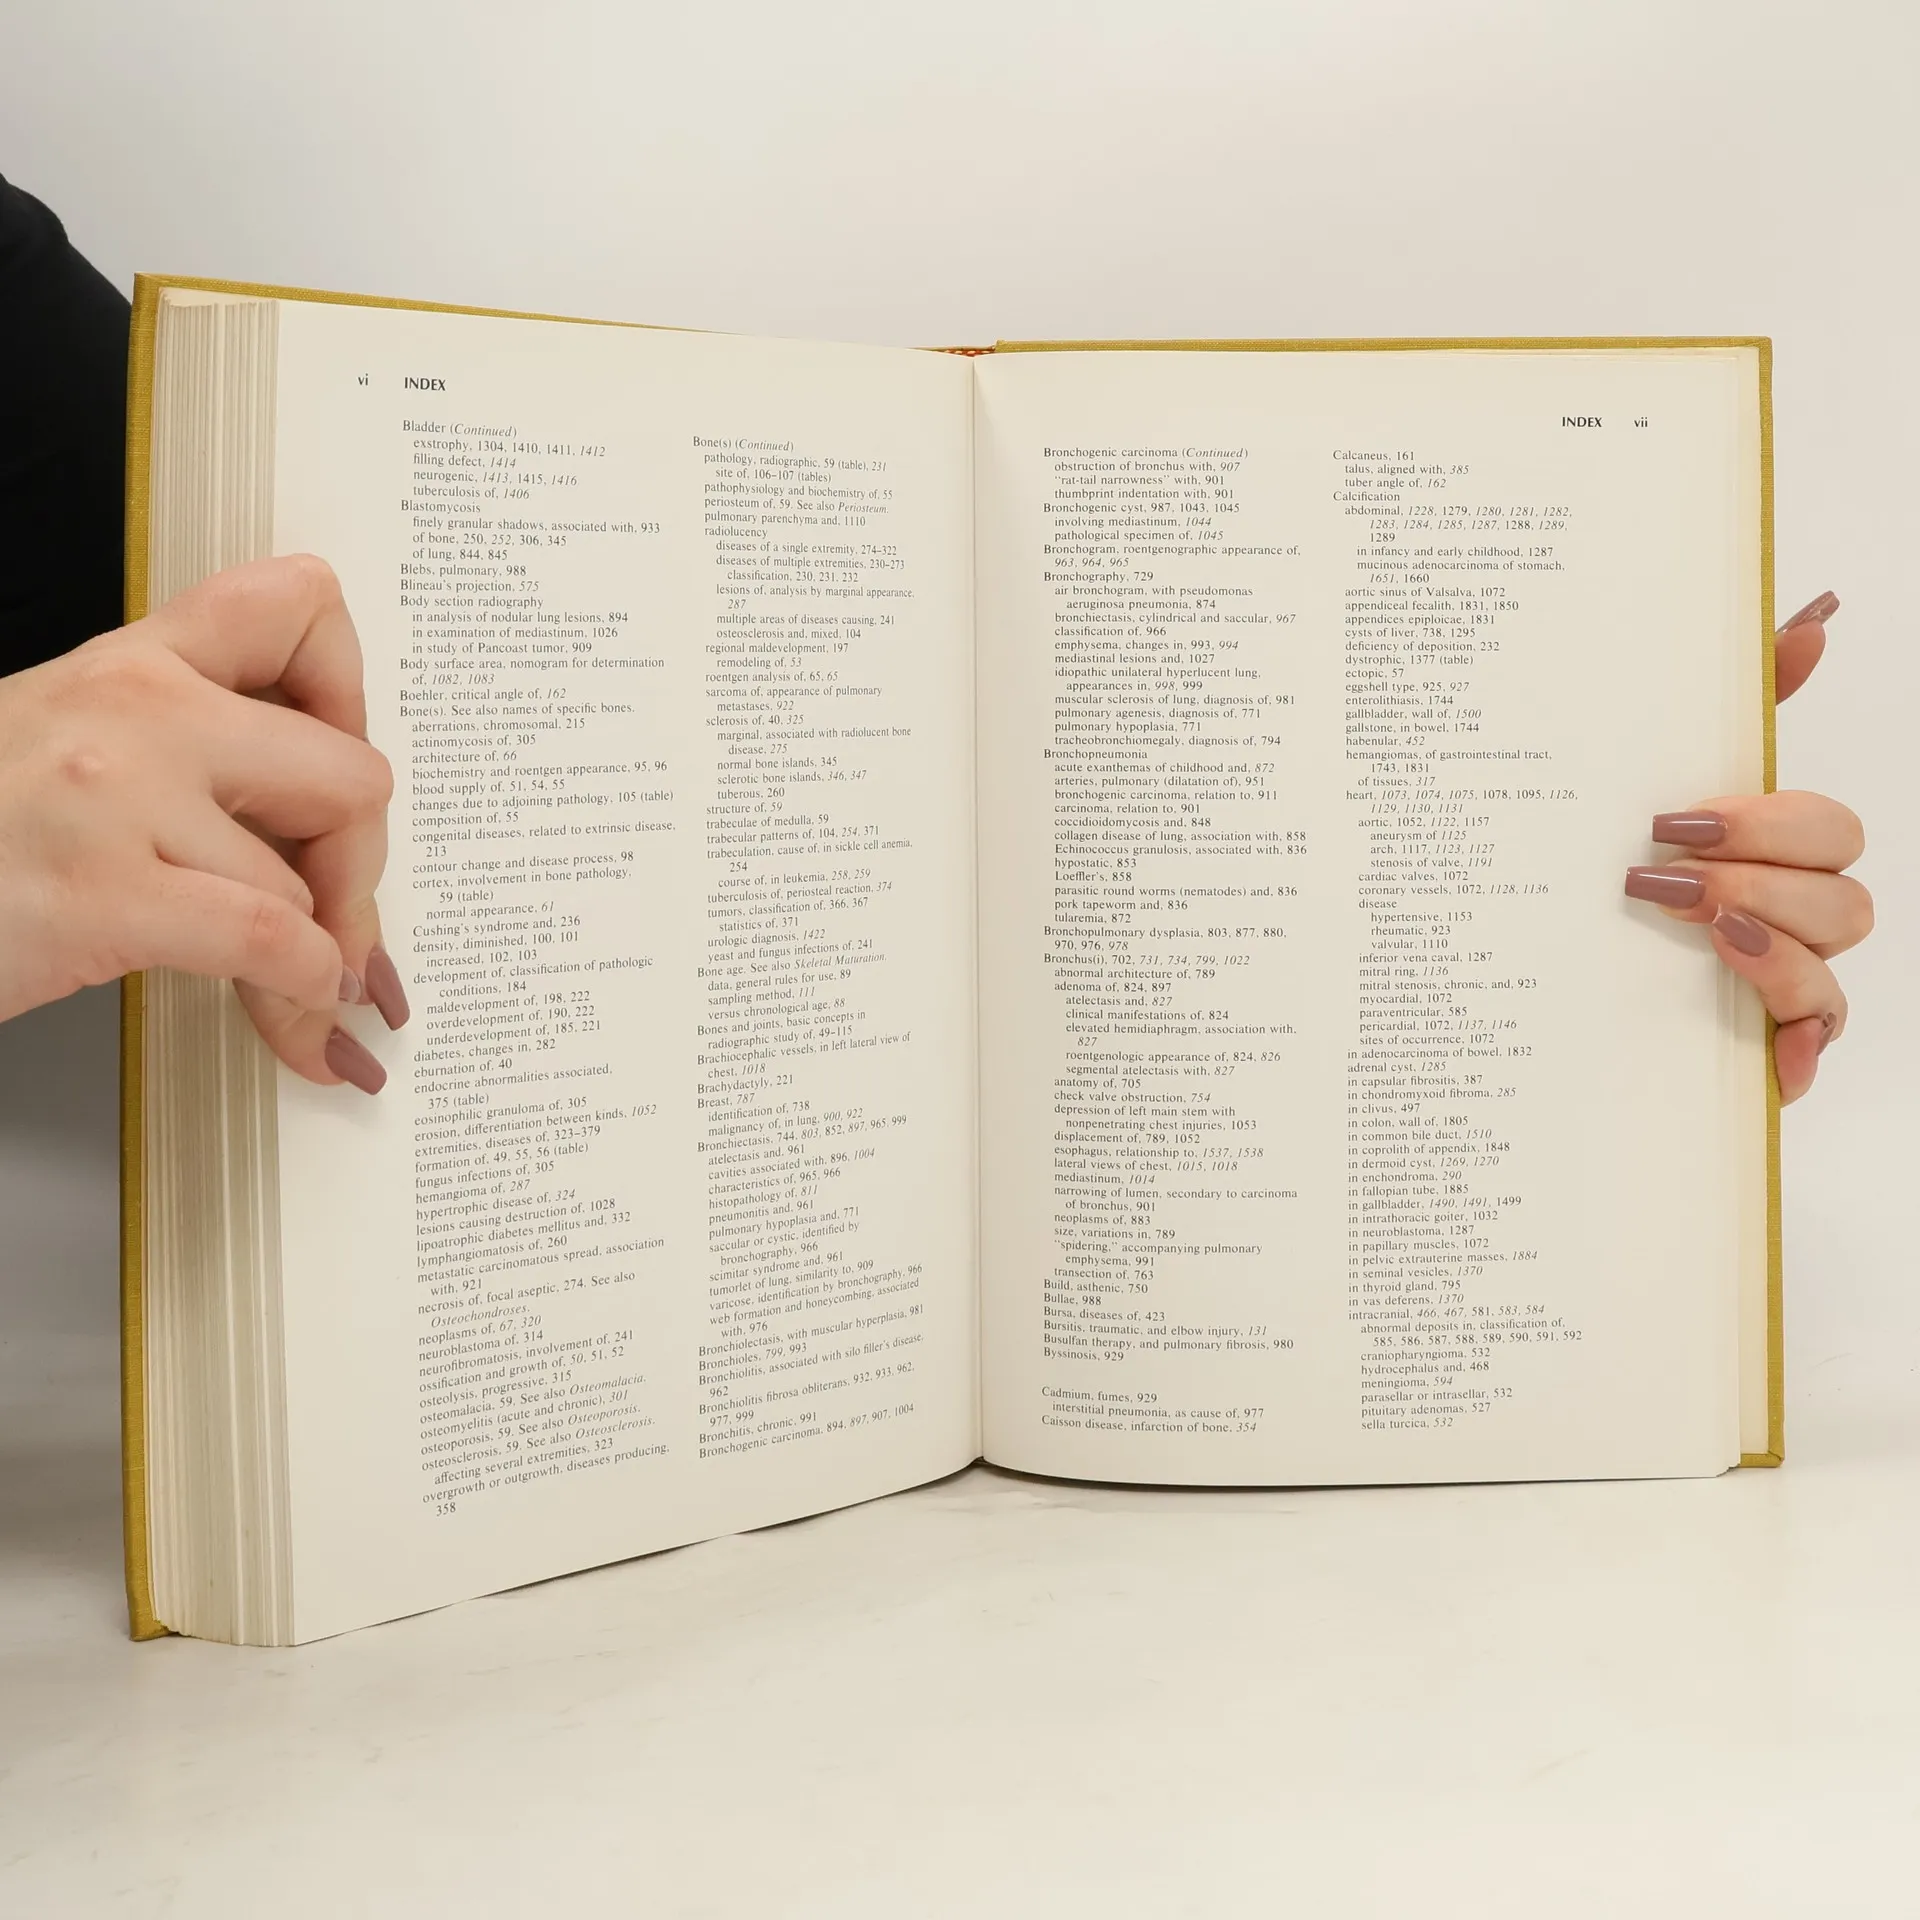 vi INDEX
Bladder (Continued)
exstrophy, 1304, 1410, 1411, 1412
filling defect, 1414
neurogenic, 1413, 1415, 1416
tuberculosis of, 1406
Blastomycosis
finely granular shadows, associated with, 933
of bone, 250, 252, 306, 345
of lung, 844, 845
Blebs, pulmonary, 988
Blineau's projection, 575
Body section radiography
in analysis of nodular lung lesions, 894
in examination of mediastinum, 1026
in study of Pancoast tumor, 909
Body surface area, nomogram for determination
of, 1082, 1083
Boehler, critical angle of, 162
Bone(s). See also names of specific bones.
aberrations, chromosomal, 215
actinomycosis of, 305
architecture of, 66
biochemistry and roentgen appearance, 95, 96
blood supply of, 51, 54, 55
changes due to adjoining pathology, 105 (table)
composition of, 55
congenital diseases, related to extrinsic disease,
213
contour change and disease process, 98
cortex, involvement in bone pathology,
59 (table)
normal appearance, 61
Cushing's syndrome and, 236
density, diminished, 100, 101
increased, 102, 103
development of, classification of pathologic
conditions, 184
maldevelopment of, 198, 222
overdevelopment of, 190, 222
underdevelopment of, 185, 221
diabetes, changes in, 282
eburnation of, 40
endocrine abnormalities associated,
375 (table)
eosinophilic granuloma of, 305
erosion, differentiation between kinds, 1052
extremities, diseases of, 323–379
formation of, 49, 55, 56 (table)
fungus infections of, 305
hemangioma of, 287
hypertrophic disease of, 324
lesions causing destruction of, 1028
lipoatrophic diabetes mellitus and, 332
lymphangiomatosis of, 260
metastatic carcinomatous spread, association
with, 921
necrosis of, focal aseptic, 274. See also
Osteochondroses.
neoplasms of, 67, 320
neuroblastoma of, 314
neurofibromatosis, involvement of, 241
ossification and growth of, 50, 51, 52
osteolysis, progressive, 315
osteomalacia, 59. See also Osteomalacia.
osteomyelitis (acute and chronic), 301
osteoporosis, 59. See also Osteoporosis.
osteosclerosis, 59. See also Osteosclerosis.
affecting several extremities, 323
overgrowth or outgrowth, diseases producing,
358
Bone(s) (Continued)
pathology, radiographic, 59 (table), 231
site of, 106–107 (tables)
pathophysiology and biochemistry of, 55
periosteum of, 59. See also Periosteum.
pulmonary parenchyma and, 1110
radiolucency
diseases of a single extremity, 274–322
diseases of multiple extremities, 230–273
classification, 230, 231, 232
lesions of, analysis by marginal appearance,
287
multiple areas of diseases causing, 241
osteosclerosis and, mixed, 104
regional maldevelopment, 197
remodeling of, 53
roentgen analysis of, 65, 65
sarcoma of, appearance of pulmonary
metastases, 922
sclerosis of, 40, 325
marginal, associated with radiolucent bone
disease, 275
normal bone islands, 345
sclerotic bone islands, 346, 347
tuberous, 260
structure of, 59
trabeculae of medulla, 59
trabecular patterns of, 104, 254, 371
trabeculation, cause of, in sickle cell anemia,
254
course of, in leukemia, 258, 259
tuberculosis of, periosteal reaction, 374
tumors, classification of, 366, 367
statistics of, 371
urologic diagnosis, 1422
yeast and fungus infections of, 241
Bone age. See also Skeletal Maturation.
data, general rules for use, 89
sampling method, 111
versus chronological age, 88
Bones and joints, basic concepts in
radiographic study of, 49–115
Brachiocephalic vessels, in left lateral view of
chest, 1018
Brachydactyly, 221
Breast, 787
identification of, 738
malignancy of, in lung, 900, 922
Bronchiectasis, 744, 803, 852, 897, 965, 999
atelectasis and, 961
cavities associated with, 896, 1004
characteristics of, 965, 966
histopathology of, 811
pneumonitis and, 961
pulmonary hypoplasia and, 771
saccular or cystic, identified by
bronchography, 966
scimitar syndrome and, 961
tumorlet of lung, similarity to, 909
varicose, identification by bronchography, 966
web formation and honeycombing, associated
with, 976
Bronchiolectasis, with muscular hyperplasia, 981
Bronchioles, 799, 993
Bronchiolitis, associated with silo filler's disease,
962
Bronchiolitis fibrosa obliterans, 932, 933, 962,
977, 999
Bronchitis, chronic, 991
Bronchogenic carcinoma, 894, 897, 907, 1004
INDEX vii
Bronchogenic carcinoma (Continued)
obstruction of bronchus with, 907
"rat-tail narrowness" with, 901
thumbprint indentation with, 901
Bronchogenic cyst, 987, 1043, 1045
involving mediastinum, 1044
pathological specimen of, 1045
Bronchogram, roentgenographic appearance of,
963, 964, 965
Bronchography, 729
air bronchogram, with pseudomonas
aeruginosa pneumonia, 874
bronchiectasis, cylindrical and saccular, 967
classification of, 966
emphysema, changes in, 993, 994
mediastinal lesions and, 1027
idiopathic unilateral hyperlucent lung,
appearances in, 998, 999
muscular sclerosis of lung, diagnosis of, 981
pulmonary agenesis, diagnosis of, 771
pulmonary hypoplasia, 771
tracheobronchiomegaly, diagnosis of, 794
Bronchopneumonia
acute exanthemas of childhood and, 872
arteries, pulmonary (dilatation of), 951
bronchogenic carcinoma, relation to, 911
carcinoma, relation to, 901
coccidioidomycosis and, 848
collagen disease of lung, association with, 858
Echinococcus granulosis, associated with, 836
hypostatic, 853
Loeffler's, 858
parasitic round worms (nematodes) and, 836
pork tapeworm and, 836
tularemia, 872
Bronchopulmonary dysplasia, 803, 877, 880,
970, 976, 978
Bronchus(i), 702, 731, 734, 799, 1022
abnormal architecture of, 789
adenoma of, 824, 897
atelectasis and, 827
clinical manifestations of, 824
elevated hemidiaphragm, association with,
827
roentgenologic appearance of, 824, 826
segmental atelectasis with, 827
anatomy of, 705
check valve obstruction, 754
depression of left main stem with
nonpenetrating chest injuries, 1053
displacement of, 789, 1052
esophagus, relationship to, 1537, 1538
lateral views of chest, 1015, 1018
mediastinum, 1014
narrowing of lumen, secondary to carcinoma
of bronchus, 901
neoplasms of, 883
size, variations in, 789
"spidering," accompanying pulmonary
emphysema, 991
transection of, 763
Build, asthenic, 750
Bullae, 988
Bursa, diseases of, 423
Bursitis, traumatic, and elbow injury, 131
Busulfan therapy, and pulmonary fibrosis, 980
Byssinosis, 929
Cadmium, fumes, 929
interstitial pneumonia, as cause of, 977
Caisson disease, infarction of bone, 354
Calcaneus, 161
talus, aligned with, 385
tuber angle of, 162
Calcification
abdominal, 1228, 1279, 1280, 1281, 1282,
1283, 1284, 1285, 1287, 1288, 1289,
1289
in infancy and early childhood, 1287
mucinous adenocarcinoma of stomach,
1651, 1660
aortic sinus of Valsalva, 1072
appendiceal fecalith, 1831, 1850
appendices epiploicae, 1831
cysts of liver, 738, 1295
deficiency of deposition, 232
dystrophic, 1377 (table)
ectopic, 57
eggshell type, 925, 927
enterolithiasis, 1744
gallbladder, wall of, 1500
gallstone, in bowel, 1744
habenular, 452
hemangiomas, of gastrointestinal tract,
1743, 1831
of tissues, 317
heart, 1073, 1074, 1075, 1078, 1095, 1126,
1129, 1130, 1131
aortic, 1052, 1122, 1157
aneurysm of 1125
arch, 1117, 1123, 1127
stenosis of valve, 1191
cardiac valves, 1072
coronary vessels, 1072, 1128, 1136
disease
hypertensive, 1153
rheumatic, 923
valvular, 1110
inferior vena caval, 1287
mitral ring, 1136
mitral stenosis, chronic, and, 923
myocardial, 1072
paraventricular, 585
pericardial, 1072, 1137, 1146
sites of occurrence, 1072
in adenocarcinoma of bowel, 1832
adrenal cyst, 1285
in capsular fibrositis, 387
in chondromyxoid fibroma, 285
in clivus, 497
in colon, wall of, 1805
in common bile duct, 1510
in coprolith of appendix, 1848
in dermoid cyst, 1269, 1270
in enchondroma, 290
in fallopian tube, 1885
in gallbladder, 1490, 1491, 1499
in intrathoracic goiter, 1032
in neuroblastoma, 1287
in papillary muscles, 1072
in pelvic extrauterine masses, 1884
in seminal vesicles, 1370
in thyroid gland, 795
in vas deferens, 1370
intracranial, 466, 467, 581, 583, 584
abnormal deposits in, classification of,
585, 586, 587, 588, 589, 590, 591, 592
craniopharyngioma, 532
hydrocephalus and, 468
meningioma, 594
parasellar or intrasellar, 532
pituitary adenomas, 527
sella turcica, 532